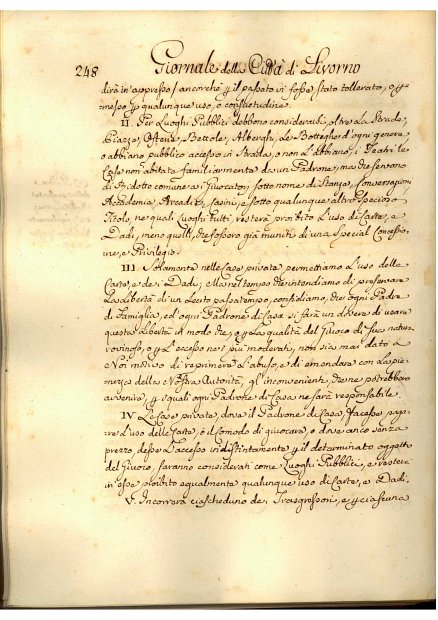 248 Giornale della Città di Livorno
dirà in appresso) ancorchè p il passato vi fosse stato tollerato, o p=
messo p qualunque uso, o consuetudine.
II. Per Luoghi Pubblici debbono considerarsi, oltre le Strade,
Piazze, Osterie, Bettole, Alberghi, Le Botteghe d'ogni genere
o abbiano pubblico accesso in Strada, o non l'abbiano, i Teatri le
Case non abitate familiarmente da un Padrone, ma che servono
di Ridotto comune a' Giuocatori sotto nome di Stanze, Conversazioni
Accademie, Arcadie, Casini, e sotto qualunque altro specioso
Titolo, ne quali Luoghi tutti resterà proibito l'uso di Carte, e
Dadi, meno quelli, che fossero già muniti di una Special Concessio=
ne, e Privilegio.
III. Solamente nelle Case private permettiamo l'uso delle
Carte, e de' Dadi, e nel tempo che intendiamo di preservare
la Libertà di un Lecito passatempo, confidiamo, che ogni Padre
di Famiglia, ed ogni Padrone di Casa si farà un dovere di usare
questa Libertà in modo che, o p la qualità del Giuoco di sua natura
rovinoso, o p l'eccesso ne' più moderati, non sia mai dato a
Noi motivo di reprimere l'abuso, e di emendare con la pie=
nezza della Nostra Autorità, gl'inconvenienti, che ne potrebbero
avvenire, p i quali ogni Padrone di Casa ne sarà responsabile.
IV. Le Case private, dove il Padrone di Casa facesse paga=
re l'uso delle Carte, o il comodo di giuocare, o dove anco senza
prezzo desse l'accesso indistintamente p il determinato oggetto
del Giuoco, saranno considerati come Luoghi Pubblici, e resterà
in esse proibito egualmente qualunque uso di Carte, e Dadi.
V. Incorrerà ciascheduno de' Trasgressori, e p ciascuna